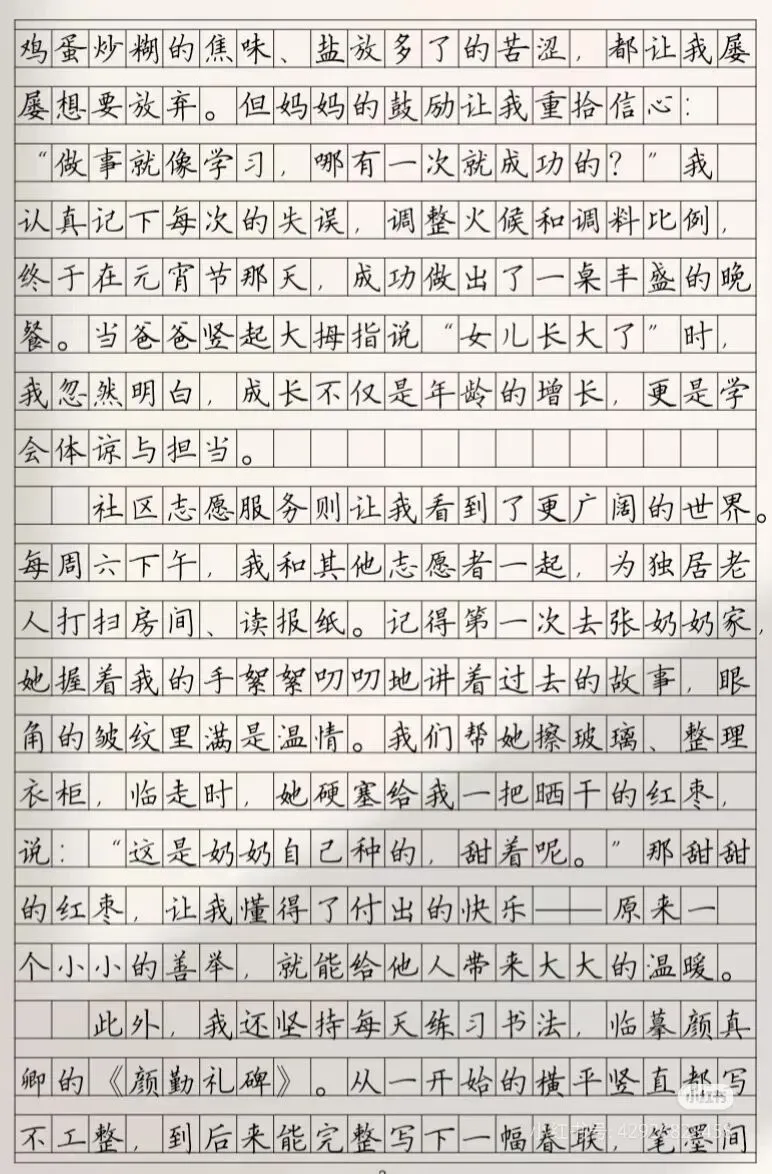 鸡蛋炒糊的焦味、盐放多了的苦涩，都让我屡
屡想要放弃。但妈妈的鼓励让我重拾信心：
“做事就像学习，哪有一次就成功的？”我
认真记下每次的失误，调整火候和调料比例，
终于在元宵节那天，成功做出了一桌丰盛的晚
餐。当爸爸竖起大拇指说“女儿长大了”时，
我忽然明白，成长不仅是年龄的增长，更是学
会体谅与担当。
社区志愿服务则让我看到了更广阔的世界。
每周六下午，我和其他志愿者一起，为独居老
人打扫房间、读报纸。记得第一次去张奶奶家，
她握着我的手絮絮叨叨地讲着过去的故事，眼
角的皱纹里满是温情。我们帮她擦玻璃、整理
衣柜，临走时，她硬塞给我一把晒干的红枣，
说：“这是奶奶自己种的，甜着呢。”那甜甜
的红枣，让我懂得了付出的快乐——原来一
个小小的善举，就能给他人带来大大的温暖。
此外，我还坚持每天练习书法，临摹颜真
卿的《颜勤礼碑》。从一开始的横平竖直都写
不工整，到后来能完整写下一幅春联，笔墨间
小红书
小红书号：